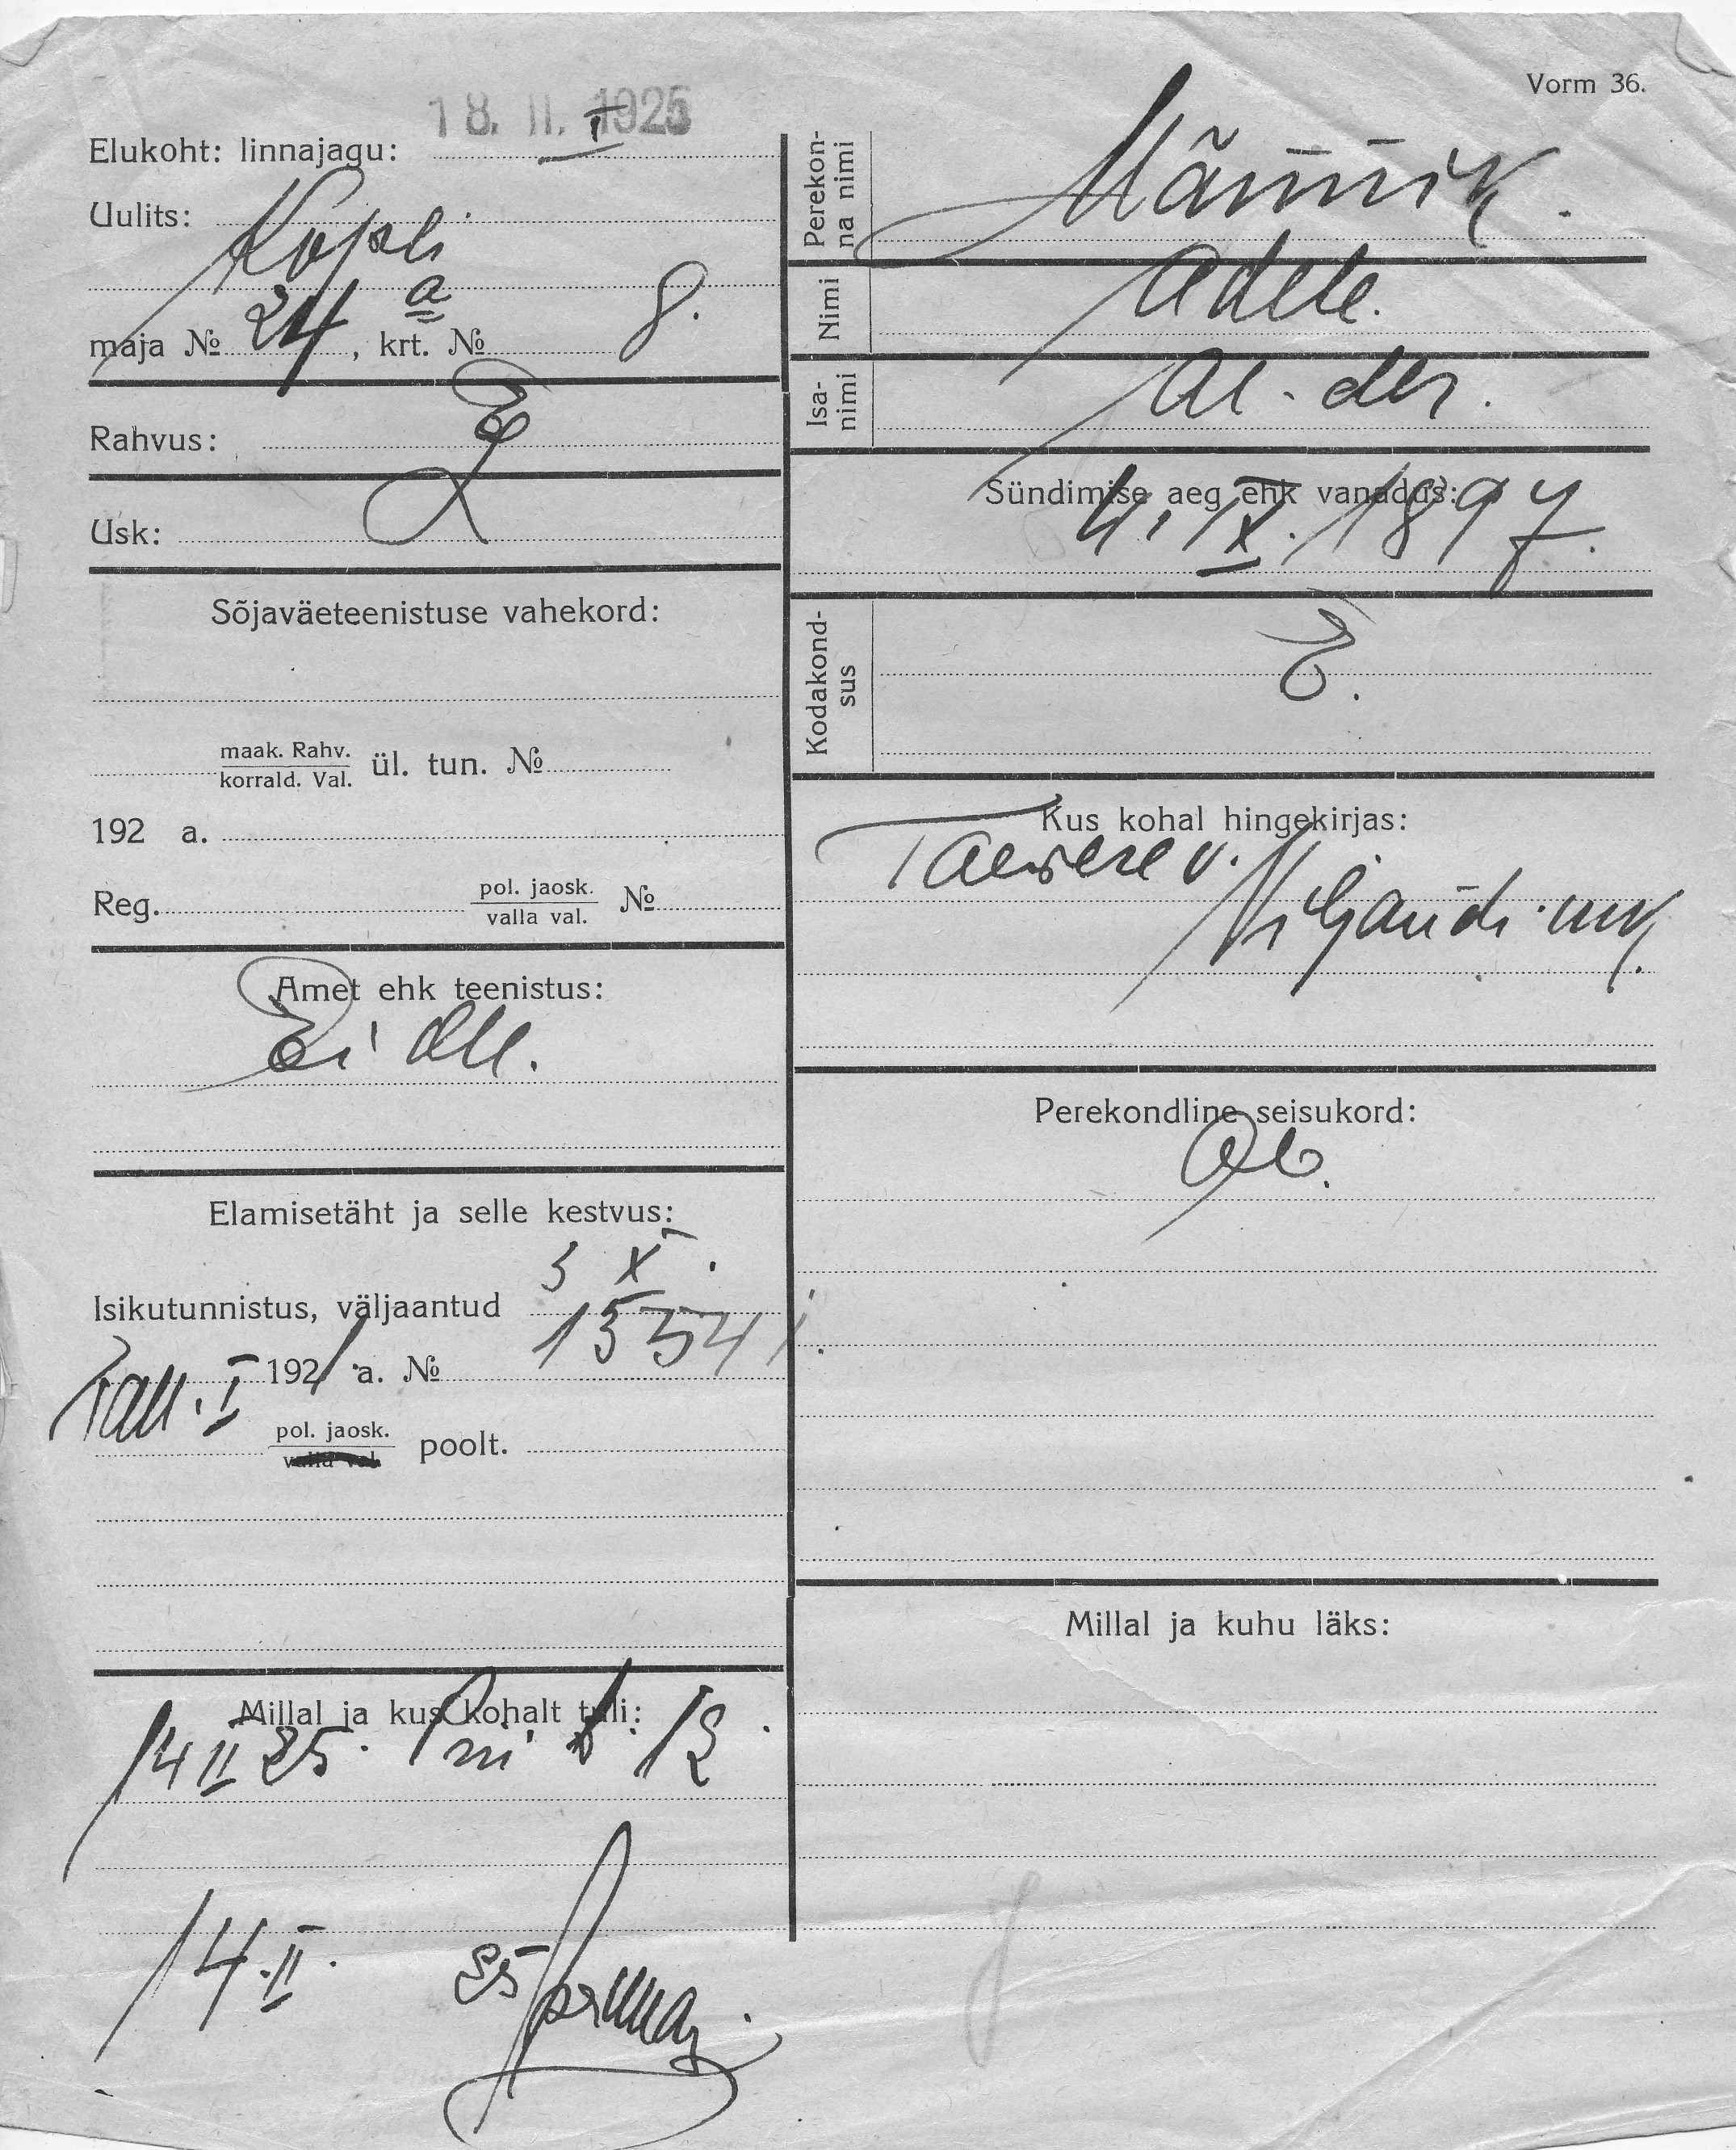 Vorm 36.
18. II. 1925
Elukoht: linnajagu: I
Uulits: Kopli
maja № 24 a, krt. № 8.
Rahvus: E
Usk: L
Sõjaväeteenistuse vahekord:
maak. Rahv.
korrald. Val. ül. tun. №
192 a.
Reg. pol. jaosk.
valla val. №
Amet ehk teenistus:
Ei ole.
Elamisetäht ja selle kestvus:
3 X.
Isikutunnistus, väljaantud
Tall. I 1921 a. №
pol. jaosk.
valla val. poolt.
Millal ja kus kohalt tuli:
14 II 25. 12
14. II. 25
Perekon-
na nimi
Männik.
Nimi
Adele.
Isa-
nimi
Al-der.
Sündimise aeg ehk vanadus:
4. IX. 1897.
Kodakond-
sus
E.
Kus kohal hingekirjas:
Taevere v.
Viljandi mk.
Perekondline seisukord:
Ab.
Millal ja kuhu läks: